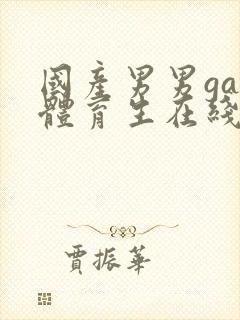 國產男男ga
體育生在綫
賈振華